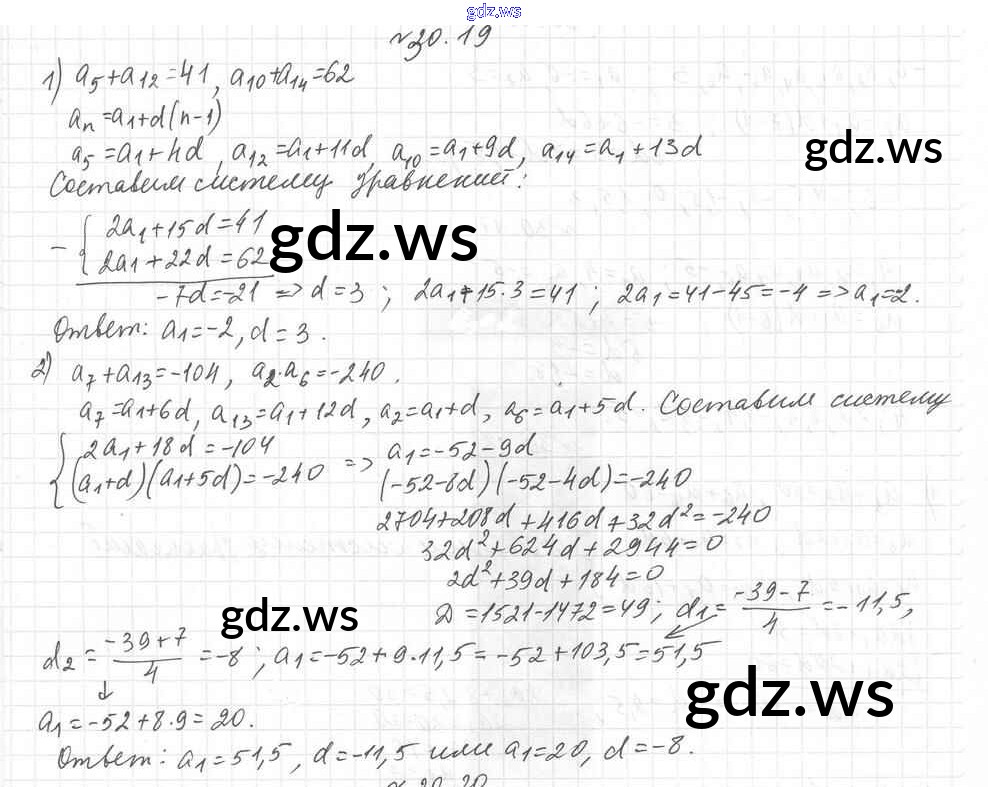 gdz.ws
№30.19
1) a₅+a₁₂=41, a₁₀+a₁₄=62
aₙ=a₁+d(n-1)
a₅=a₁+4d, a₁₂=a₁+11d, a₁₀=a₁+9d, a₁₄=a₁+13d
gdz.ws
Составим систему уравнений:
2a₁+15d=41
- { 2a₁+22d=62
gdz.ws
-7d=-21 => d=3; 2a₁+15·3=41; 2a₁=41-45=-4 => a₁=2.
Ответ: a₁=-2, d=3.
2) a₇+a₁₃=-104, a₂·a₆=-240.
a₇=a₁+6d, a₁₃=a₁+12d, a₂=a₁+d, a₆=a₁+5d. Составим систему
{ 2a₁+18d=-104 => a₁=-52-9d
(a₁+d)(a₁+5d)=-240 (-52-8d)(-52-4d)=-240
2704+208d+416d+32d²=-240
32d²+624d+2944=0
2d²+39d+184=0
D=1521-1472=49; d₁=(-39-7)/4=-11,5,
gdz.ws
d₂=(-39+7)/4=-8; a₁=-52+9·11,5=-52+103,5=51,5
gdz.ws
a₁=-52+8·9=20.
Ответ: a₁=51,5, d=-11,5 или a₁=20, d=-8.